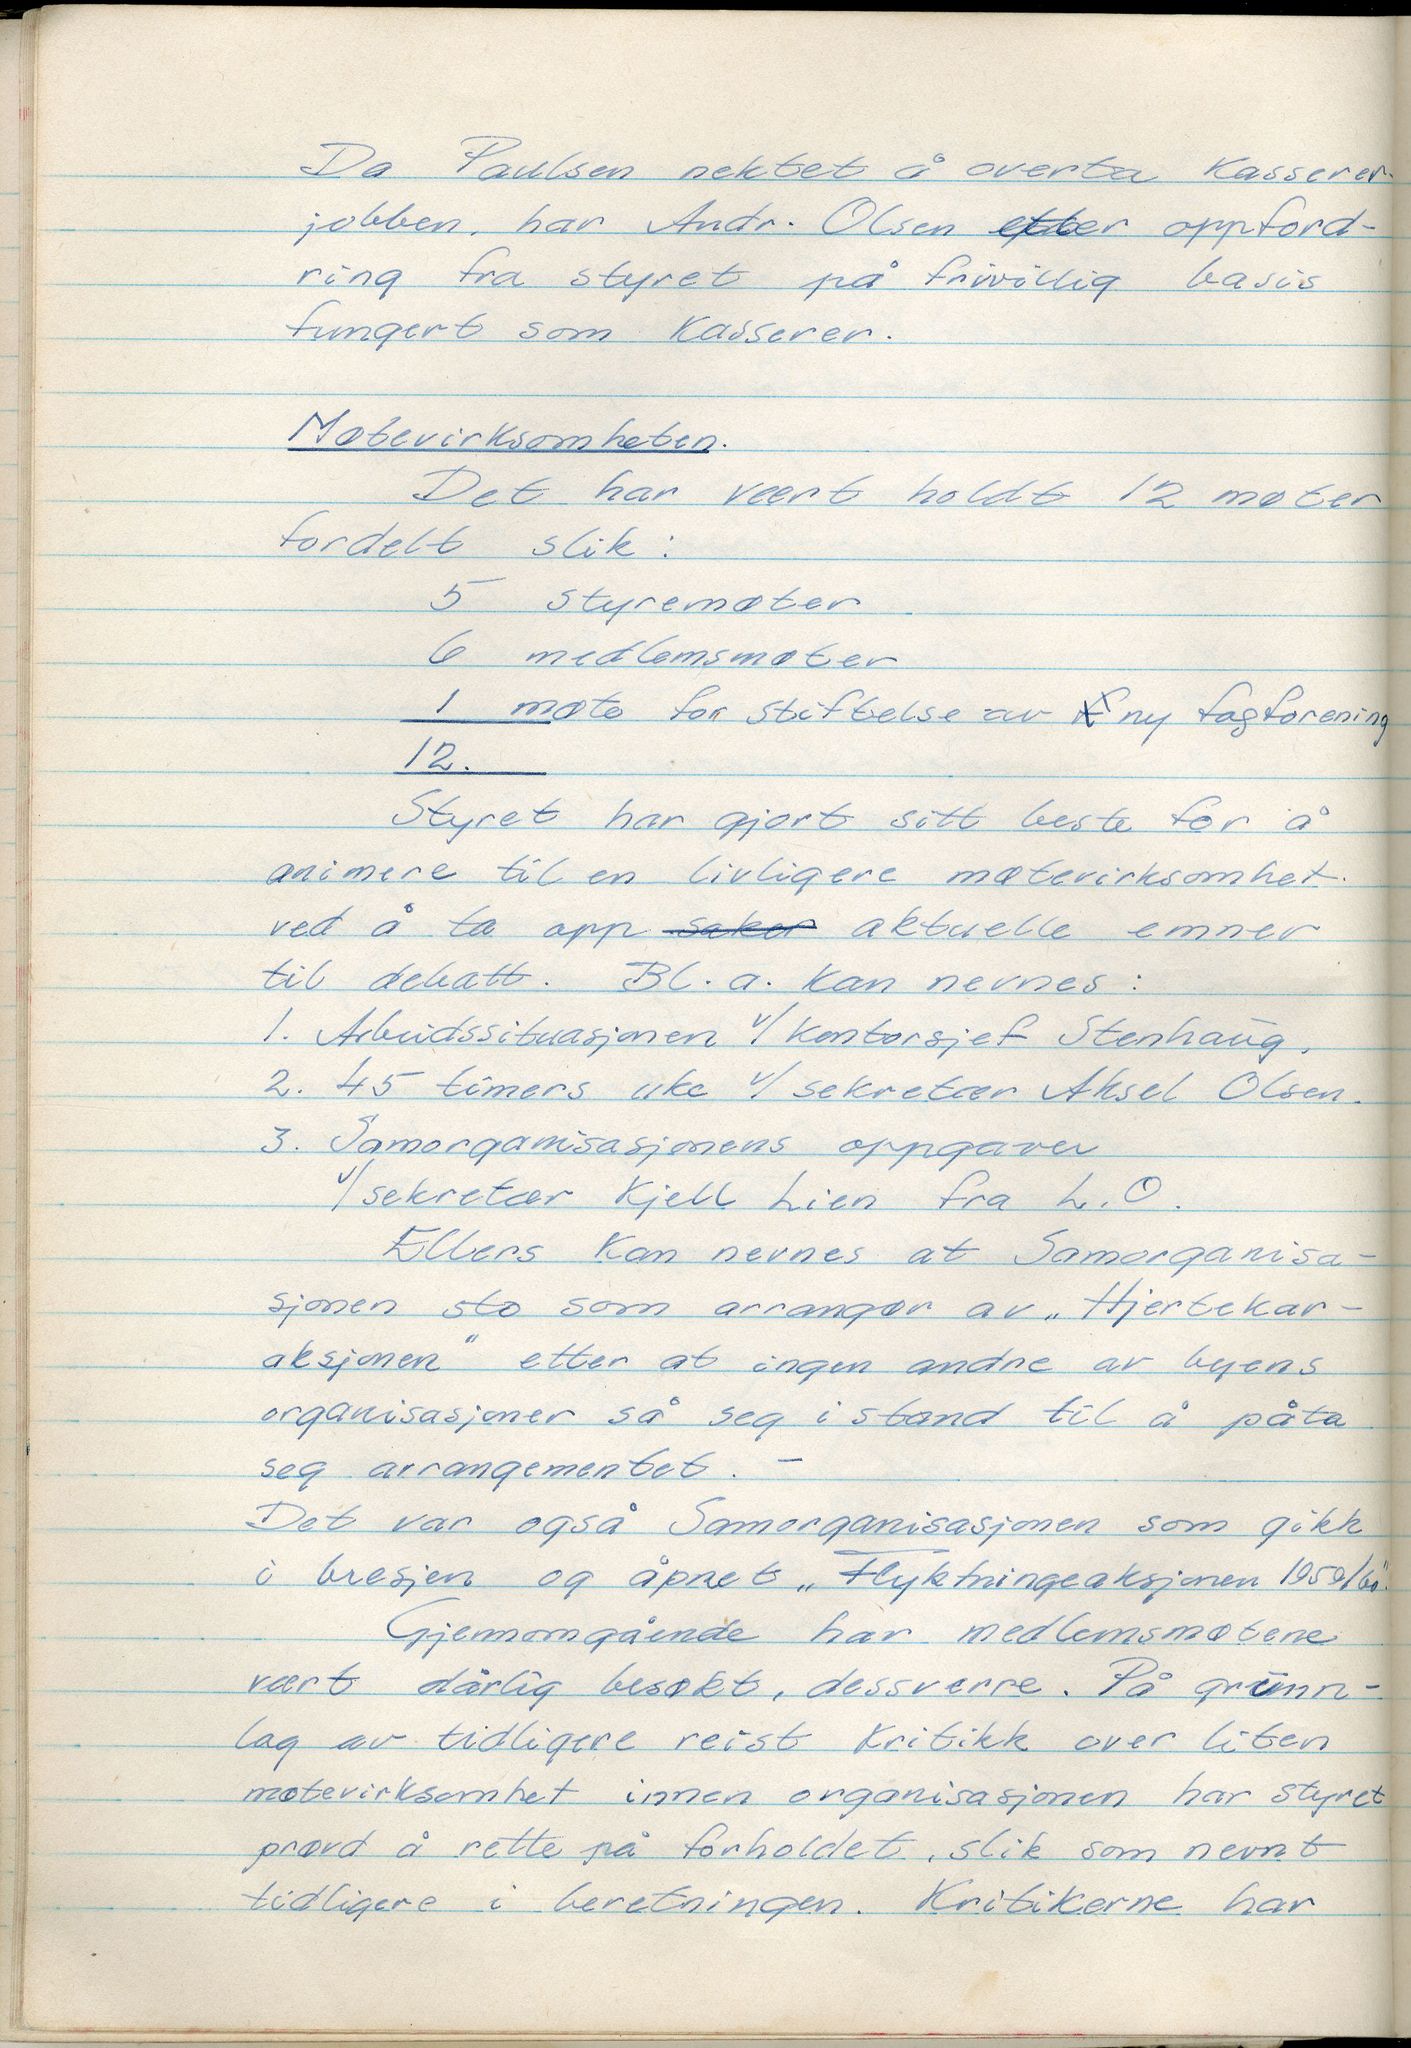 Da Paulsen nektet å overta Kasserer-
jobben, har Andr. Olsen etter oppford-
ring fra styret på frivillig basis
fungert som Kasserer.
Møtevirksomheten.
Det har vært holdt 12 møter
fordelt slik:
5 styremøter
6 medlemsmøter
1 møte for stiftelse av ny fagforening
12.
Styret har gjort sitt beste for å
animere til en livligere møtevirksomhet.
ved å ta opp saker aktuelle emner
til debatt. Bl. a. kan nevnes:
1. Arbeidssituasjonen v/ kontorsjef Stenhaug.
2. 45 timers uke v/ sekretær Aksel Olsen.
3. Samorganisasjonens oppgaver
v/ sekretær Kjell Lien fra L.O.
Ellers kan nevnes at Samorganisa-
sjonen sto som arrangør av „Hjertekar-
aksjonen" etter at ingen andre av byens
organisasjoner så seg i stand til å påta
seg arrangementet. -
Det var også Samorganisasjonen som gikk
i bresjen og åpnet „Flyktningeaksjonen 1959/60".
Gjennomgående har medlemsmøtene
vært dårlig besøkt, dessverre. På grunn-
lag av tidligere reist kritikk over liten
møtevirksomhet innen organisasjonen har styret
prøvd å rette på forholdet, slik som nevnt
tidligere i beretningen. Kritikerne har